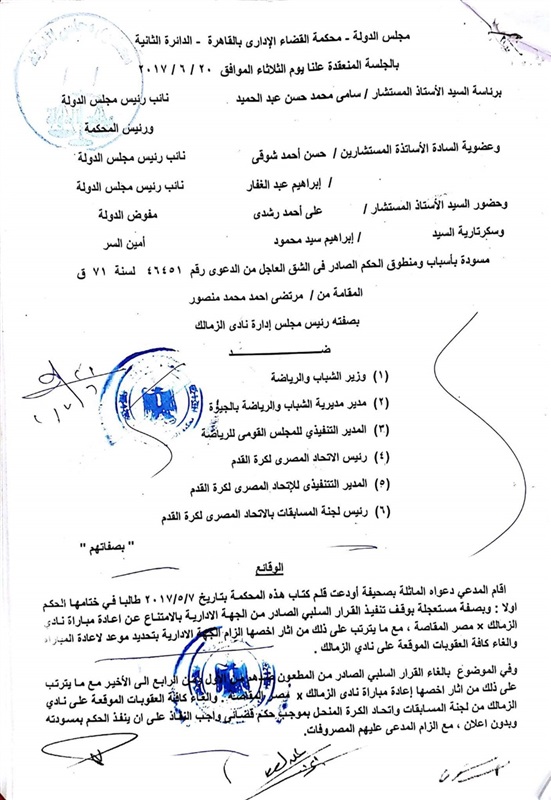 مجلس الدولة - محكمة القضاء الإدارى بالقاهرة - الدائرة الثانية
بالجلسة المنعقدة علنا يوم الثلاثاء الموافق ٢٠ / ٦ / ٢٠١٧
برئاسة السيد الأستاذ المستشار / سامى محمد حسن عبد الحميد نائب رئيس مجلس الدولة
ورئيس المحكمة
وعضوية السادة الأساتذة المستشارين / حسن أحمد شوقى نائب رئيس مجلس الدولة
/ إبراهيم عبد الغفار نائب رئيس مجلس الدولة
وحضور السيد الأستاذ المستشار / على أحمد رشدى مفوض الدولة
وسكرتارية السيد / إبراهيم سيد محمود أمين السر
مسودة بأسباب ومنطوق الحكم الصادر فى الشق العاجل من الدعوى رقم ٤٦٤٥١ لسنة ٧١ ق
المقامة من / مرتضى احمد محمد منصور
بصفته رئيس مجلس إدارة نادى الزمالك
ضـــــــــد
(١) وزير الشباب والرياضة
(٢) مدير مديرية الشباب والرياضة بالجيزة
(٣) المدير التنفيذي للمجلس القومى للرياضة
(٤) رئيس الاتحاد المصرى لكرة القدم
(٥) المدير التنفيذى للإتحاد المصرى لكرة القدم
(٦) رئيس لجنة المسابقات بالاتحاد المصرى لكرة القدم
" بصفاتهم "
الوقائع
اقام المدعي دعواه الماثلة بصحيفة أودعت قلم كتاب هذه المحكمة بتاريخ ٢٠١٧/٥/٧ طالبا في ختامها الحكم
اولا : وبصفة مستعجلة بوقف تنفيذ القرار السلبي الصادر من الجهة الادارية بالامتناع عن اعادة مباراة نادي
الزمالك x مصر المقاصة ، مع ما يترتب على ذلك من اثار اخصها الزام الجهة الادارية بتحديد موعد لاعادة المباراة
والغاء كافة العقوبات الموقعة على نادي الزمالك .
وفي الموضوع بالغاء القرار السلبي الصادر من المطعون ضدهم من الأول ومن الرابع الى الأخير مع ما يترتب
على ذلك من اثار اخصها إعادة مباراة نادى الزمالك x مصر المقاصة والغاء كافة العقوبات الموقعة على نادي
الزمالك من لجنة المسابقات واتحاد الكرة المنحل بموجب حكم قضائى واجب النفاذ على ان ينفذ الحكم بمسودته
وبدون اعلان ، مع الزام المدعى عليهم المصروفات .